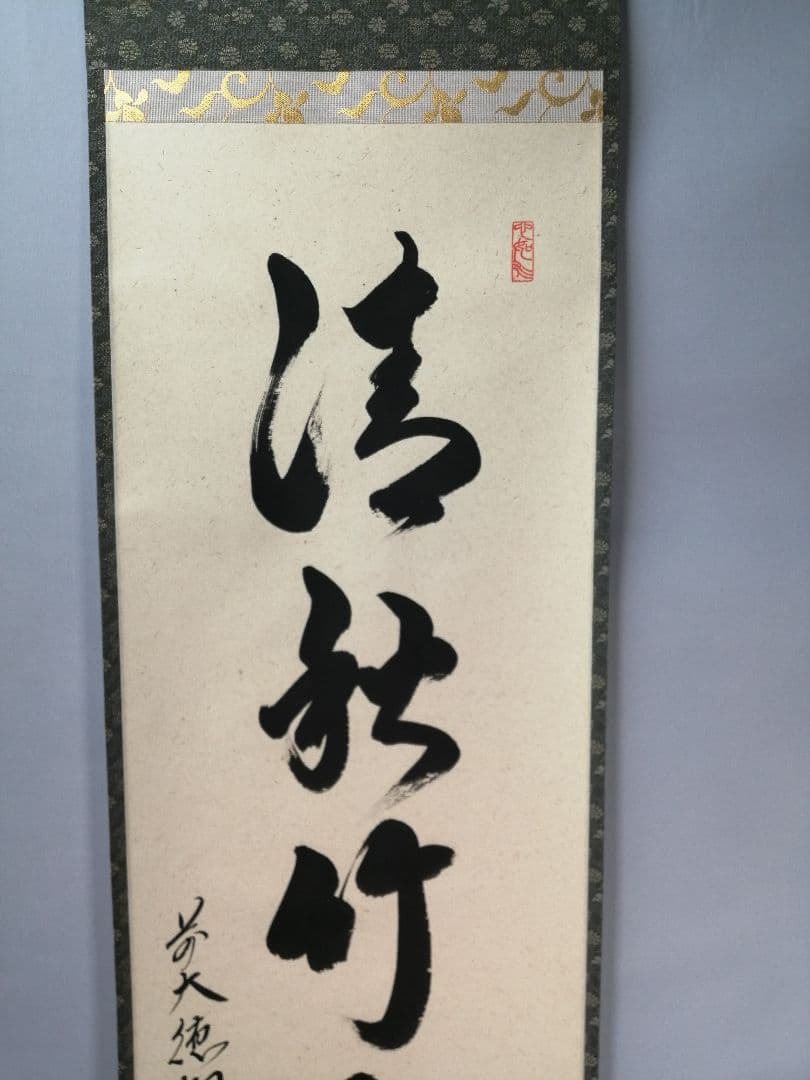 清秋竹
前大徳